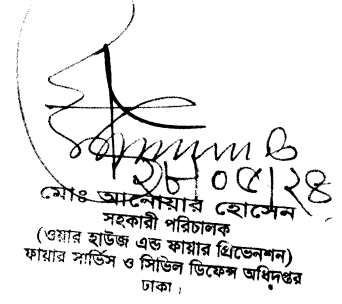 ২৮/০৫/২৪
মোঃ আনোয়ার হোসেন
সহকারী পরিচালক
(ওয়ার হাউজ এন্ড ফায়ার প্রিভেনশন)
ফায়ার সার্ভিস ও সিভিল ডিফেন্স অধিদপ্তর
ঢাকা।